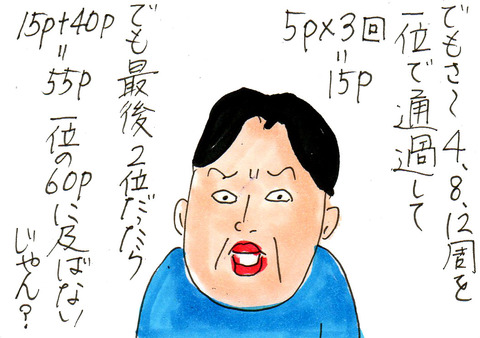 でもさ〜4、8、12周を
一位で通過して
5p×3回
=
15p
でも最後2位だったら
15p+40p
=
55p 一位の60pに及ばない
じゃん?